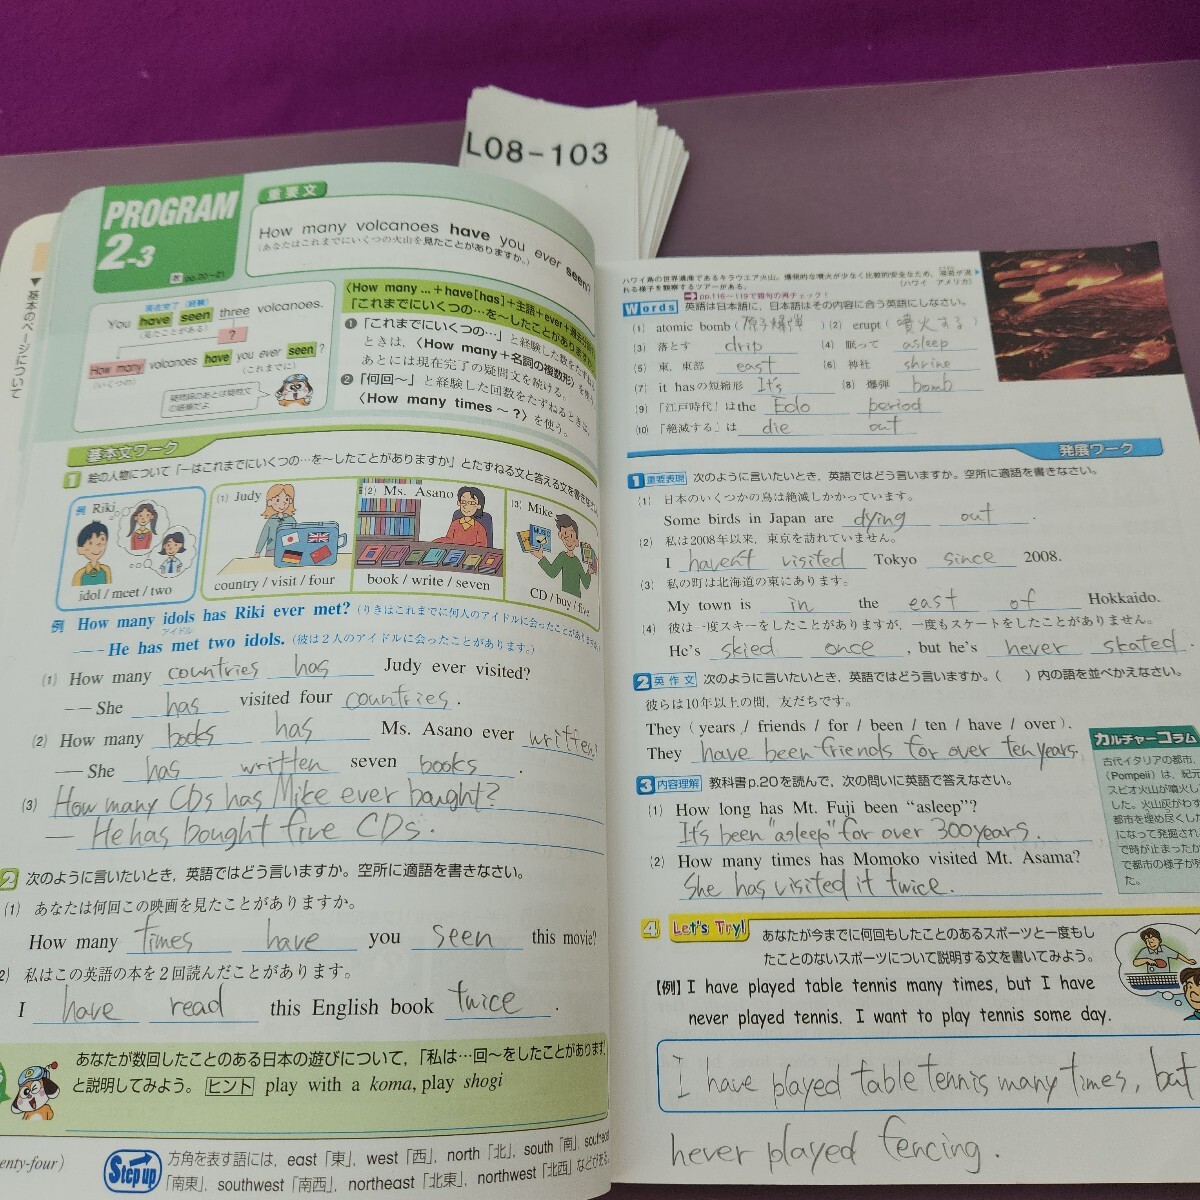 L08-103
PROGRAM
2-3
教 pp.20~21
重要文
How many volcanoes have you ever seen?
(あなたはこれまでにいくつの火山を見たことがありますか。)
▼基本のページについて
現在完了(経験)
You have seen three volcanoes.
(見たことがある)
?
How many volcanoes have you ever seen ?
(いくつの)
(これまでに)
疑問詞のあとは疑問文
の語順だよ
〈How many …+have[has]+主語+ever+過去分詞
「これまでにいくつの…を~したことがありますか」
❶「これまでにいくつの…」と経験した数をたずねる
ときは、〈How many+名詞の複数形〉を使う。
あとには現在完了の疑問文を続ける。
❷「何回~」と経験した回数をたずねるときは、
〈How many times ~?〉を使う。
基本文ワーク
1 絵の人物について「―はこれまでにいくつの…を~したことがありますか」とたずねる文と答える文を書きなさい
例 Riki
idol / meet / two
(1) Judy
country / visit / four
(2) Ms. Asano
book / write / seven
(3) Mike
MUSIC
CD / buy / five
例 How many idols has Riki ever met? (りきはこれまでに何人のアイドルに会ったことがありますか。)
アイドル
—— He has met two idols. (彼は2人のアイドルに会ったことがあります。)
(1) How many countries has Judy ever visited?
—— She has visited four countries.
(2) How many books has Ms. Asano ever written?
—— She has written seven books.
(3) How many CDs has Mike ever bought?
— He has bought five CDs.
2 次のように言いたいとき、英語ではどう言いますか。空所に適語を書きなさい。
(1) あなたは何回この映画を見たことがありますか。
How many times have you seen this movie?
2) 私はこの英語の本を2回読んだことがあります。
I have read this English book twice.
あなたが数回したことのある日本の遊びについて、「私は…回~をしたことがあります」
と説明してみよう。 ヒント play with a koma, play shogi
enty-four)
Step up
方角を表す語には、east「東」, west「西」, north「北」, south「南」, southeast
「南東」, southwest「南西」, northeast「北東」, northwest「北西」などがある。
ハワイ島の世界遺産であるキラウエア火山。爆発的な噴火が少なく比較的安全なため、溶岩が流
れる様子を観察するツアーがある。
(ハワイ アメリカ)
pp.116~119で語句の再チェック!
Words 英語は日本語に、日本語はその内容に合う英語にしなさい。
(1) atomic bomb (原子爆弾) (2) erupt (噴火する)
(3) 落とす drip (4) 眠って asleep
(5) 東, 東部 east (6) 神社 shrine
(7) it hasの短縮形 It's (8) 爆弾 bomb
(9) 「江戸時代」はthe Edo period
(10) 「絶滅する」は die out
発展ワーク
1 重要表現 次のように言いたいとき、英語ではどう言いますか。空所に適語を書きなさい。
(1) 日本のいくつかの鳥は絶滅しかかっています。
Some birds in Japan are dying out.
(2) 私は2008年以来, 東京を訪れていません。
I haven't visited Tokyo since 2008.
(3) 私の町は北海道の東にあります。
My town is in the east of Hokkaido.
(4) 彼は一度スキーをしたことがありますが, 一度もスケートをしたことがありません。
He's skied once, but he's never skated.
2 英作文 次のように言いたいとき、英語ではどう言いますか。( )内の語を並べかえなさい。
彼らは10年以上の間, 友だちです。
They ( years / friends / for / been / ten / have / over ).
They have been friends for over ten years.
3 内容理解 教科書p.20を読んで、次の問いに英語で答えなさい。
(1) How long has Mt. Fuji been “asleep”?
It's been "asleep" for over 300 years.
(2) How many times has Momoko visited Mt. Asama?
She has visited it twice.
カルチャーコラム
古代イタリアの都市、
(Pompeii)は、紀元
スビオ火山が噴火し
した。火山灰がわず
都市を埋め尽くした
になって発掘され
で時が止まったか
で都市の様子が残
た。
4 Let's Try! あなたが今までに何回もしたことのあるスポーツと一度もし
たことのないスポーツについて説明する文を書いてみよう。
【例】 I have played table tennis many times, but I have
never played tennis. I want to play tennis some day.
I have played table tennis many times, but
never played fencing.